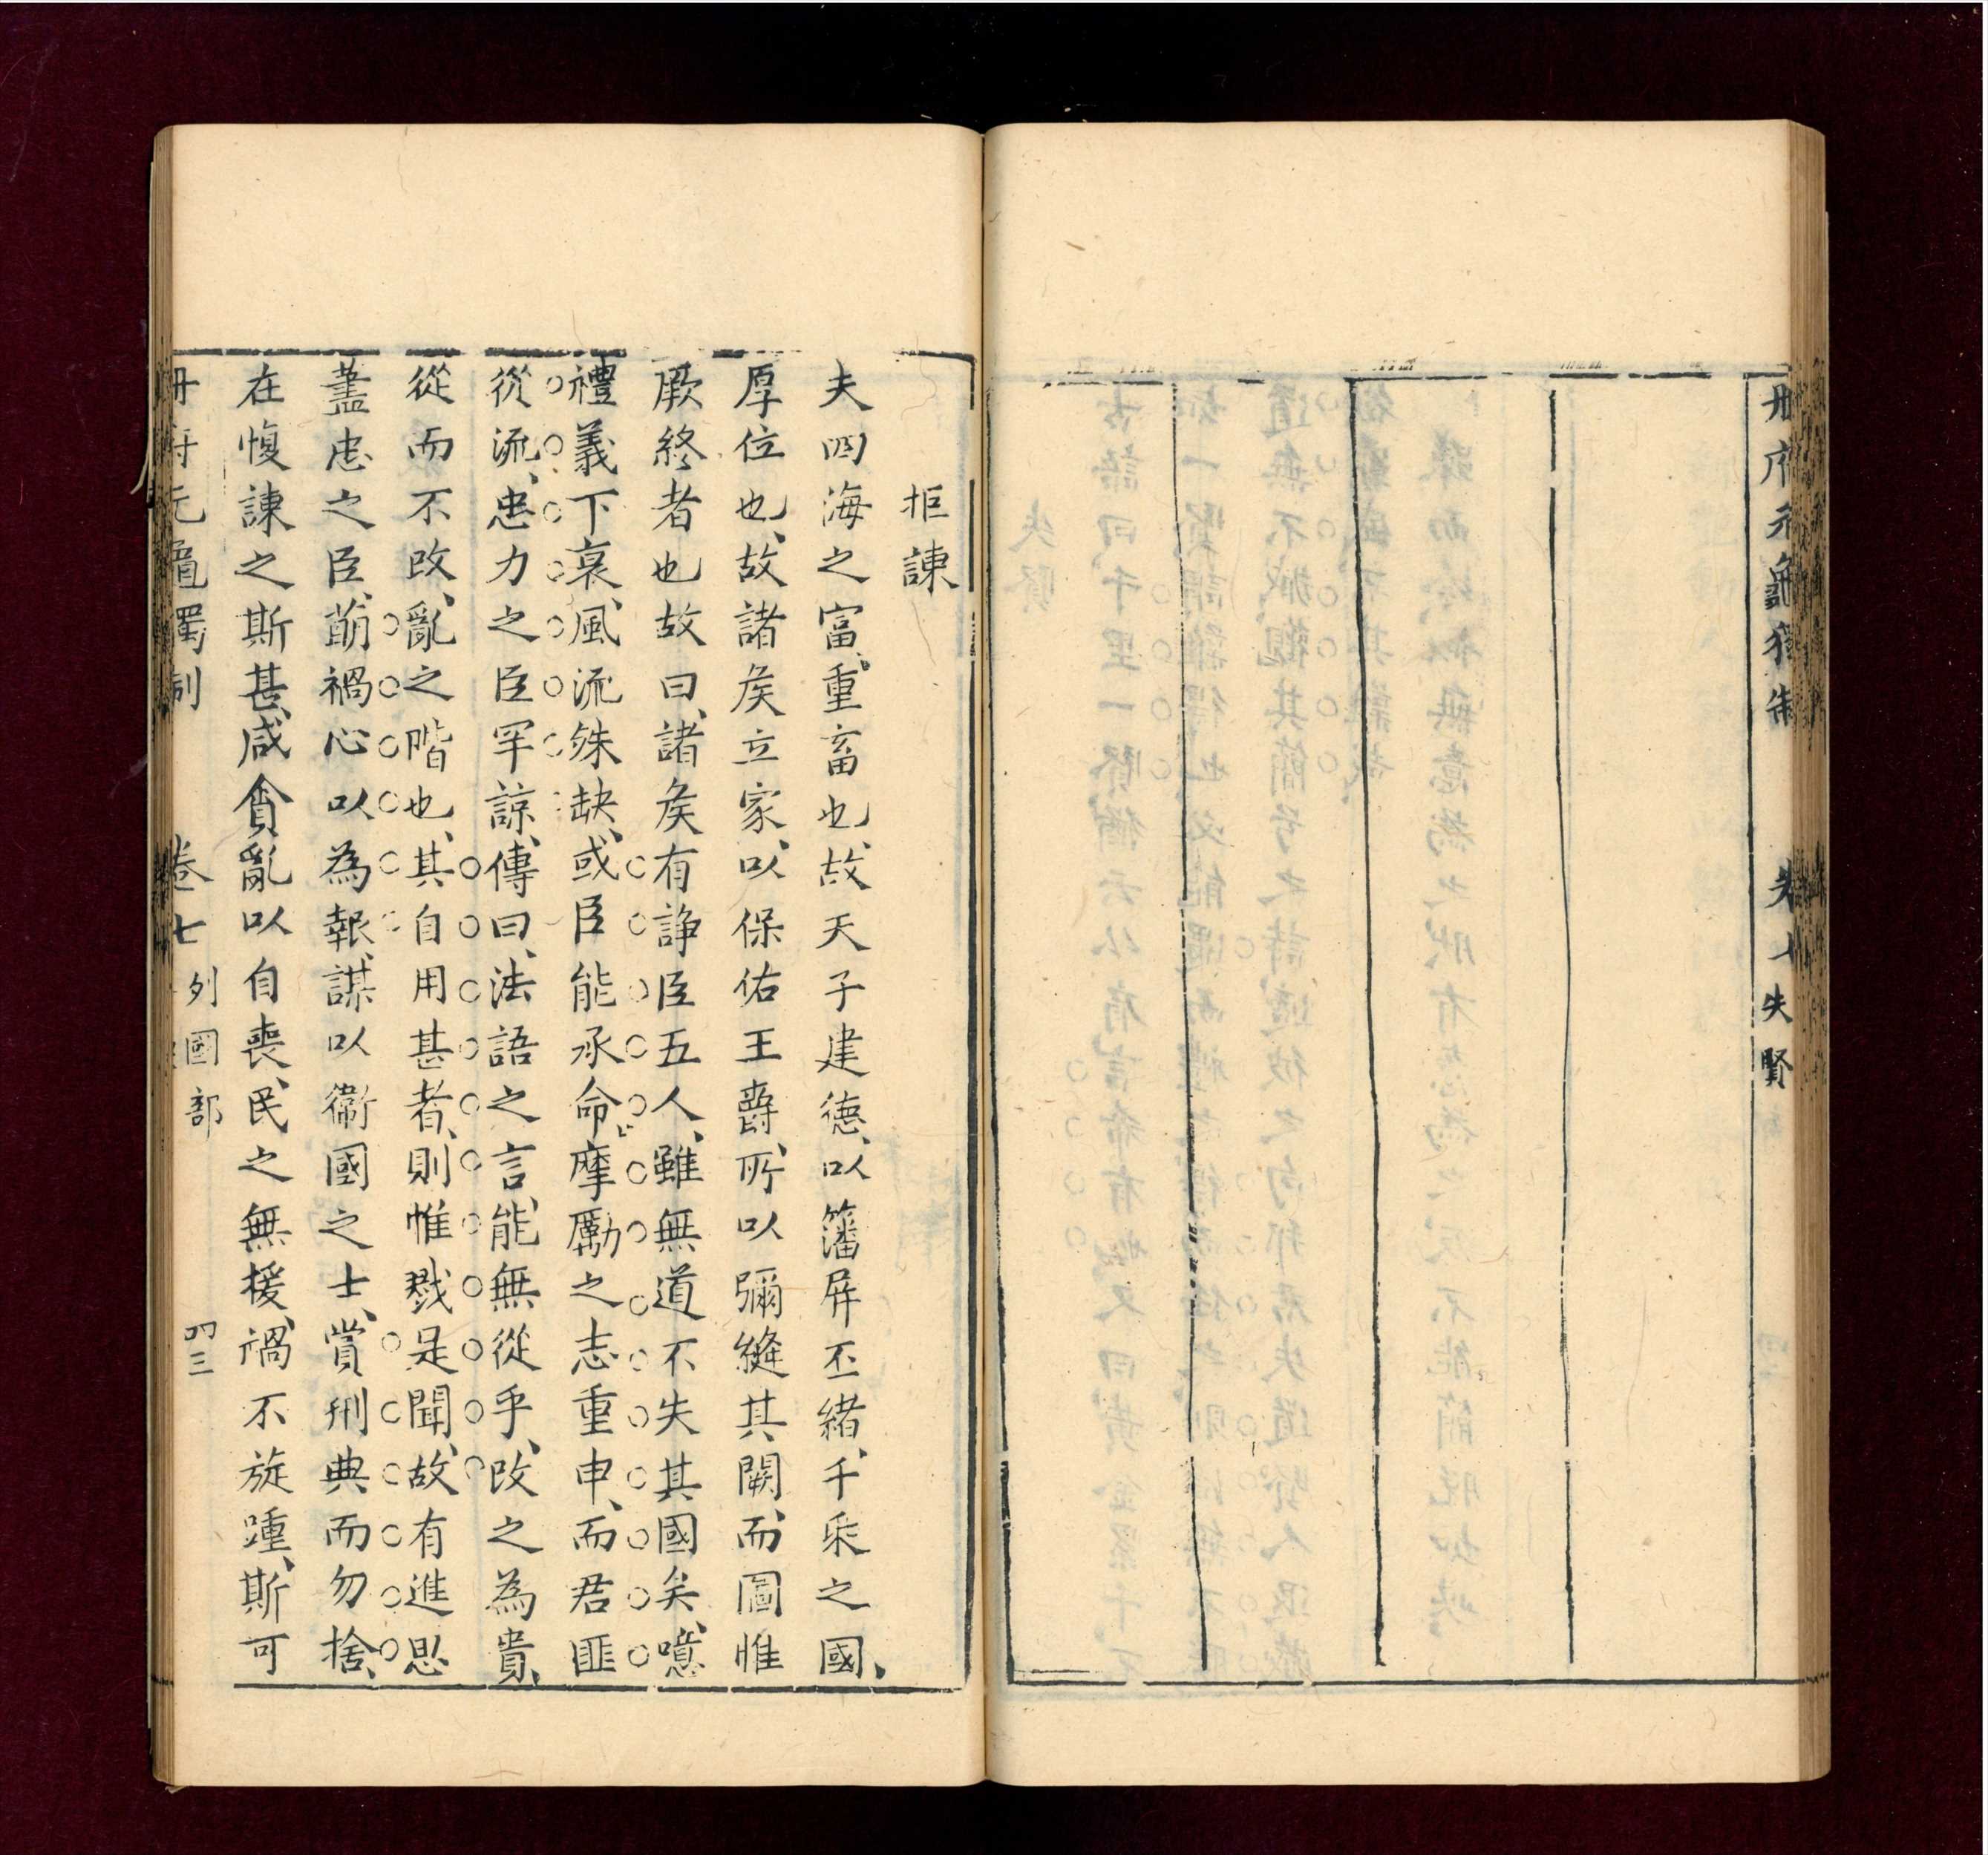 冊府元龜獨制　卷七失賢
拒諫
夫四海之富、重畜也、故天子建德、以籓屏丕緒、千乘之國、
厚位也、故諸矦立家、以保佑王爵、所以彌縫其闕、而圖惟
厥終者也故曰、諸矦有諍臣五人、雖無道不失其國矣、噫
禮義下衰、風流殊缺、或臣能承命、摩勵之志重申、而君匪
從流、忠力之臣罕諒、傳曰、法語之言、能無從乎、改之為貴、
從而不改、亂之階也、其自用甚者、則惟戮是聞、故有進思
藎忠之臣、萠禍心以為報、謀以衞國之士、賞刑典而勿捨、
在愎諫之斯甚、咸貪亂以自喪、民之無援、禍不旋踵、斯可
冊府元龜獨制　卷七　列國部　四三